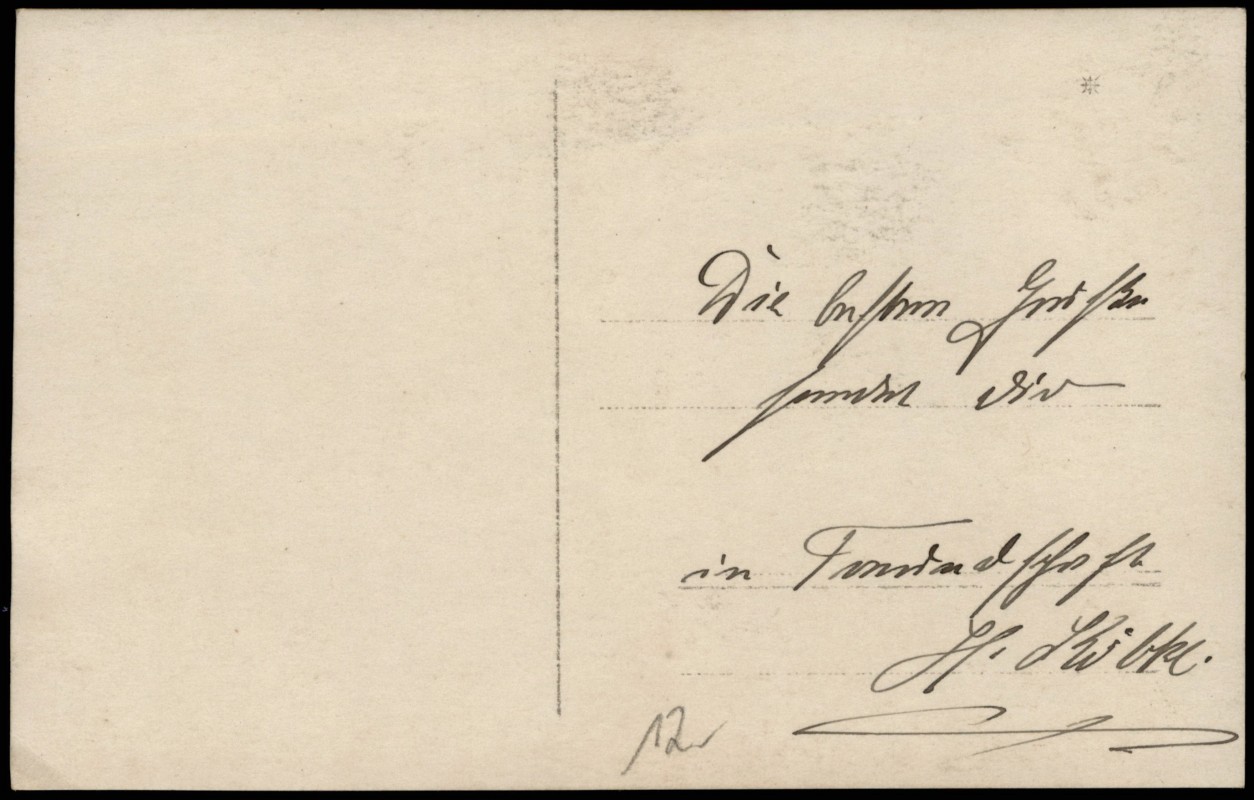 Die besten Grüße
sendet Dir
in Freundschaft
H.
12,-